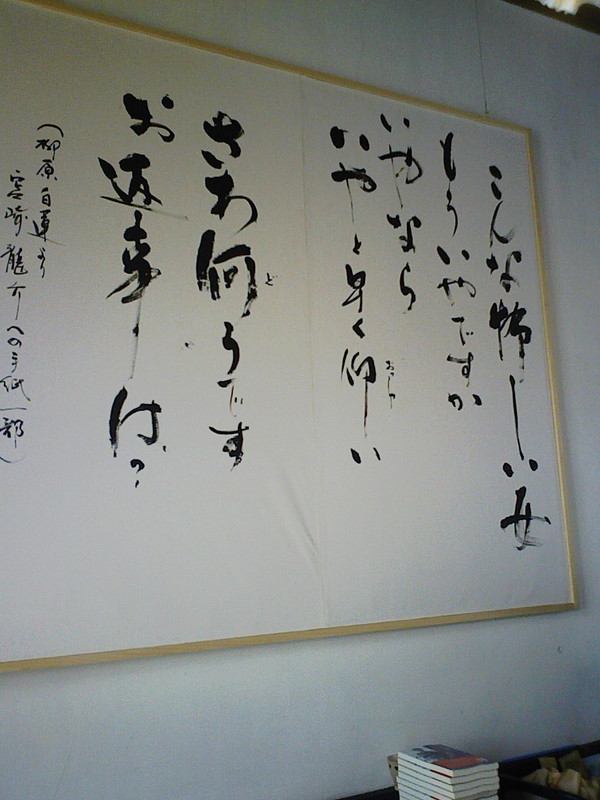 こんな怖しい女
もういやですか
いやなら
いやと早く仰しい
おっしゃ
さあ何うです
ど
お返事は？
（柳原白蓮より
宮崎龍介への手紙一部）